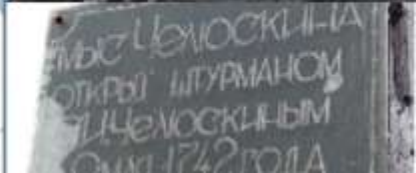 МЫС ЧЕЛЮСКИНА
ОТКРЫТ ШТУРМАНОМ
ЧЕЛЮСКИНЫМ
1742 ГОДА